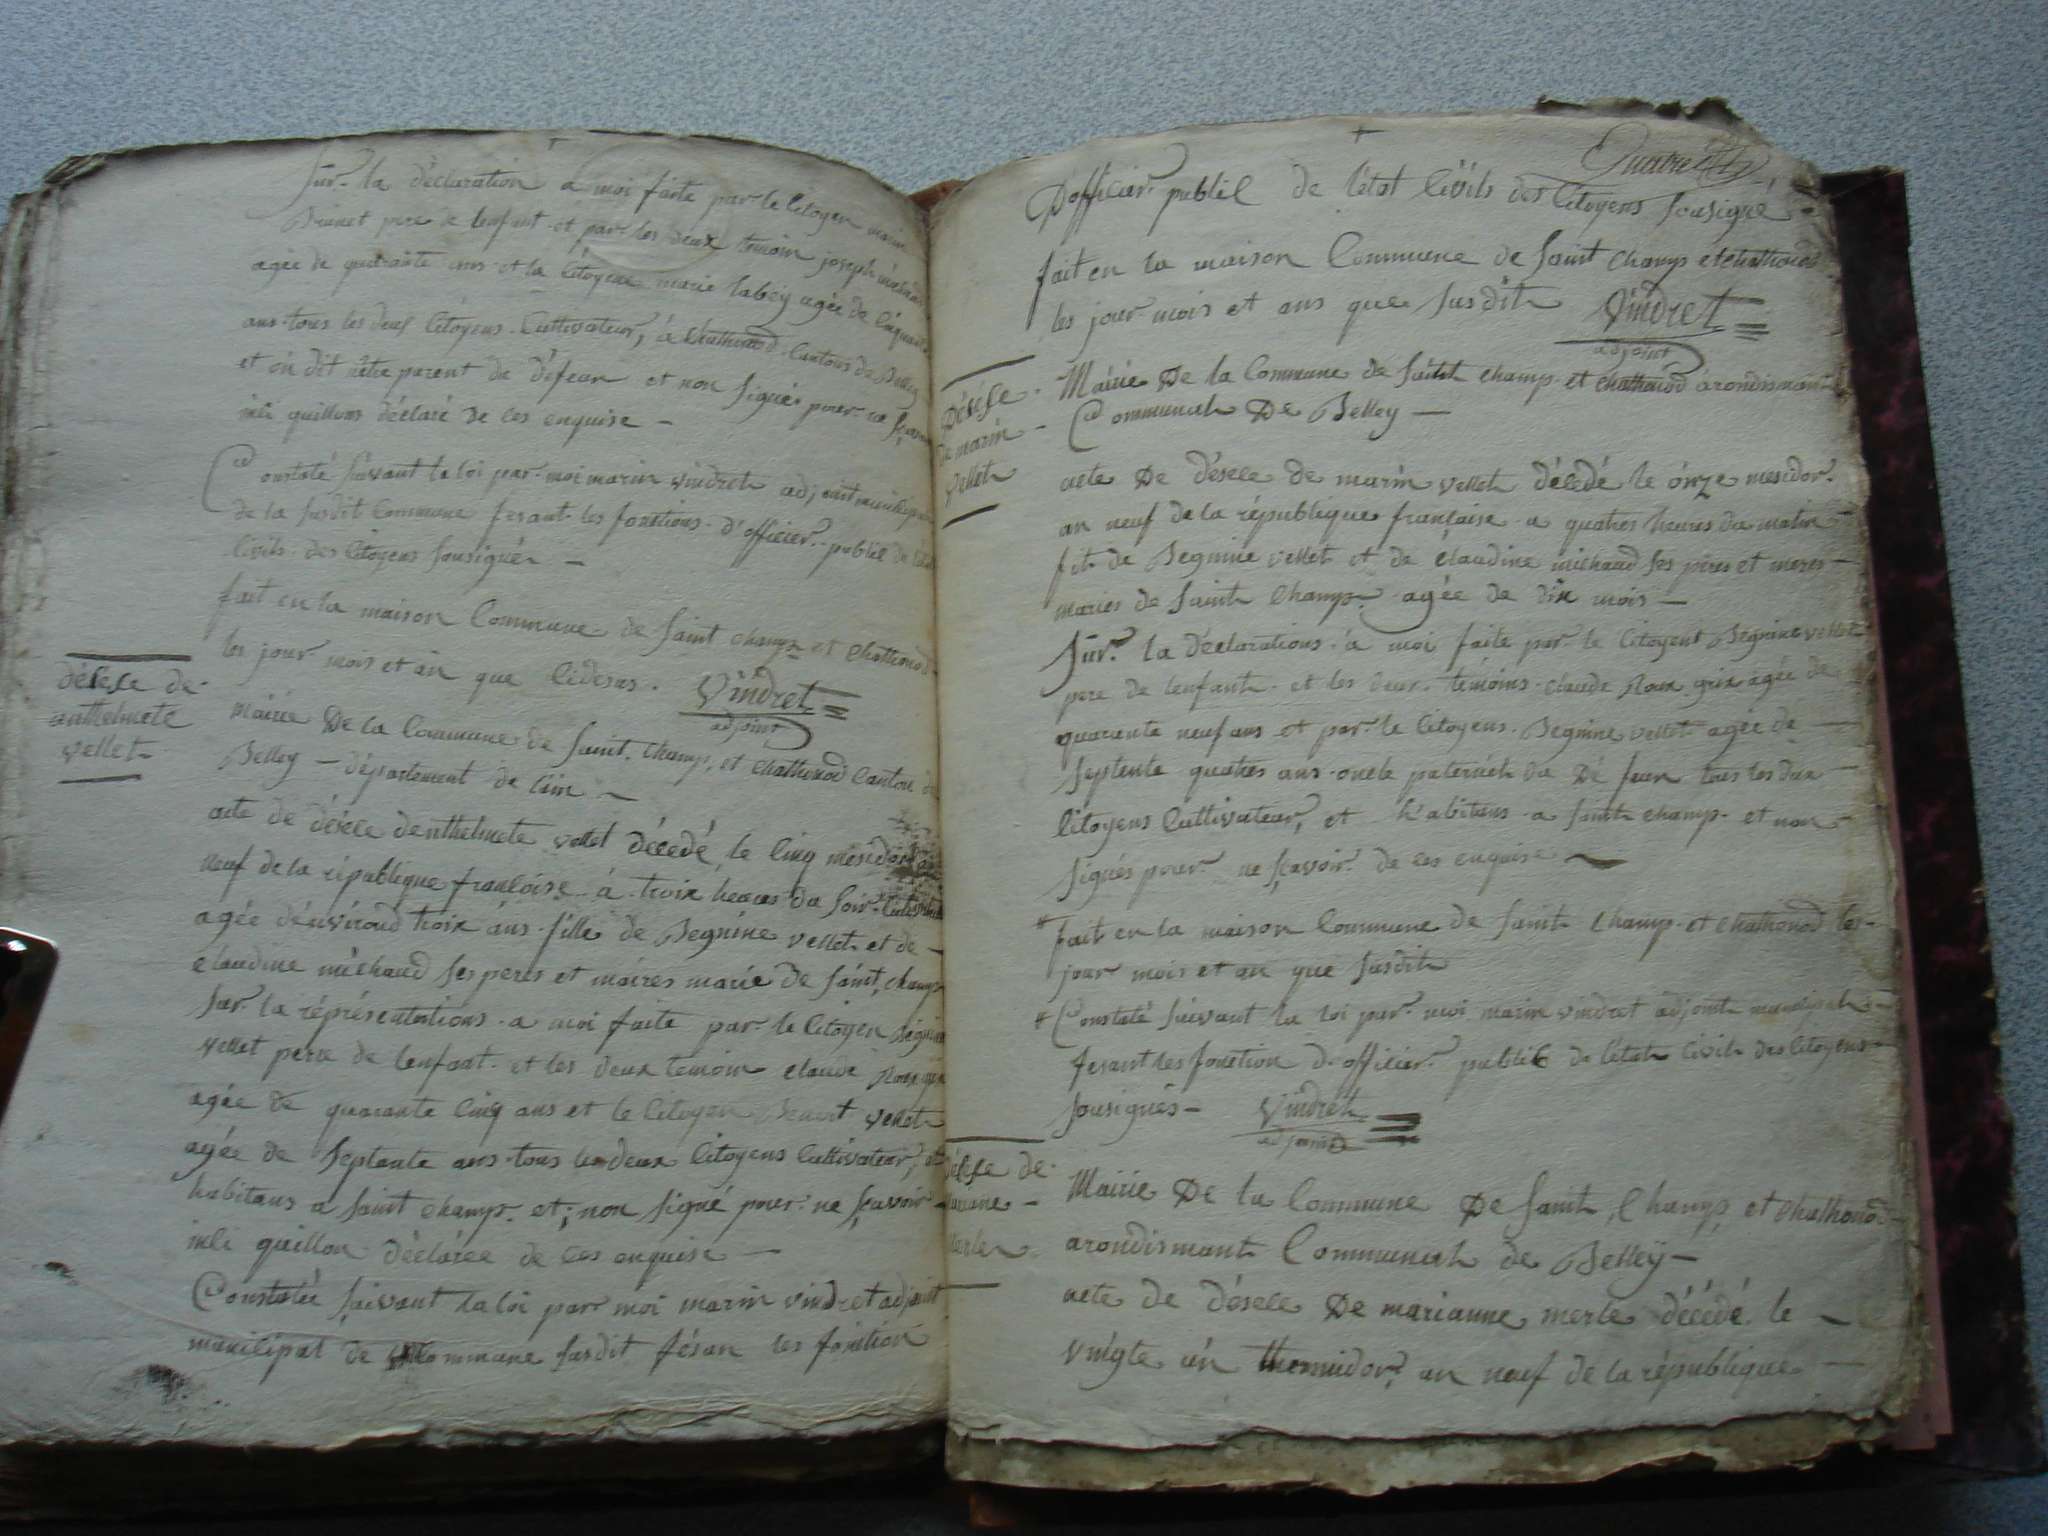 Sur la déclaration a moi faite par le Citoyen marin
Brunet pere de lenfant et par les deux temoin joseph
agée de quarante ans et la Citoyene marie labey agée de Cinquante
ans tous les deux Citoyens Cultivateur, à Chathonod Cantons de Belley
et on dit nêtre parent du Défeun et non Signés pour ne
inli quillons déclaré de ces enquise —
Constaté Suivant la loi par moi marin vindret adjoint
de la Susdit Commune fesant les fonctions d'officier public de létat
Civils des Citoyens Sousignés —
fait en la maison Commune de Saint Champs et Chathonod
les jour mois et an que Cidesus. Vindret
adjoint
désése de
anthelmete
vellet
Mairie De la Commune de Saint Champ, et Chathonod Canton de
Belley — département de l'ain —
acte de désece denthelmete vellet décédé le Cinq mesidor
neuf de la république françoise à troix heures du Soir
agée déuviroud troix ans fille de Begnine vellet et de
Claudine michaud Ses peres et maires marie de Saint, Champ
Sur la réprésentations a moi faite par le Citoyen Begnine
vellet pere de lenfant et les deux temoin Claude Roux
agée de quarante Cinq ans et le Citoyen Benoit vellet
agée de Septente ans tous les deux Citoyens Cultivateur, et
habitans a Saint Champ et; non Signé pour ne Sçavoir
inli quillon déclarée de ces enquise —
Constatée Suivant la loi par moi marin vindret adjoint
municipal de Commune Susdit fésan les fonction
D'officier publiC de létat Civils des Citoyens Sousigné
fait en la maison Commune de Saint Champ et Chathonod
les jour mois et ans que Susdit Vindret
adjoint
Désése
de marin
Vellet
Mairie De la Commune de Saint Champ et Chathonod arondisment
Communal De Belley —
acte De Désece de marin vellet décédé le onze mesidor
an neuf de la république française a quatres heures du matin
fit de Begnine vellet et de Claudine michaud Ses pères et meres
maries de Saint Champ agée de dix mois —
Sur la déclarations à moi faite par le Citoyent Begnine vellet
pere de lenfant et les deux témoins Claude Roux agée de
quarante neuf ans et par le Citoyens Begnine vellet agée de
Septente quatres ans oncle paternel du Dé feun tous les dux
Citoyens Cultivateur, et habitans a Saint Champ et non
Signés pour ne Sçavoir de ces enquise —
fait en la maison Commune de Saint Champ et Chathonod les
jour mois et an que Susdit
Constaté Suivant la loi par moi marin vindret adjoint municipal
fesant les fonction d'officier public de létat Civil des Citoyens
Sousignés — Vindret
adjoint
désése de
mariane
Merle
Mairie De la Commune De Saint, Champ et Chathonod
arondismant Communal de Belley —
acte de désece De marianne merle décédé le
vingte un thermidor an neuf de la république